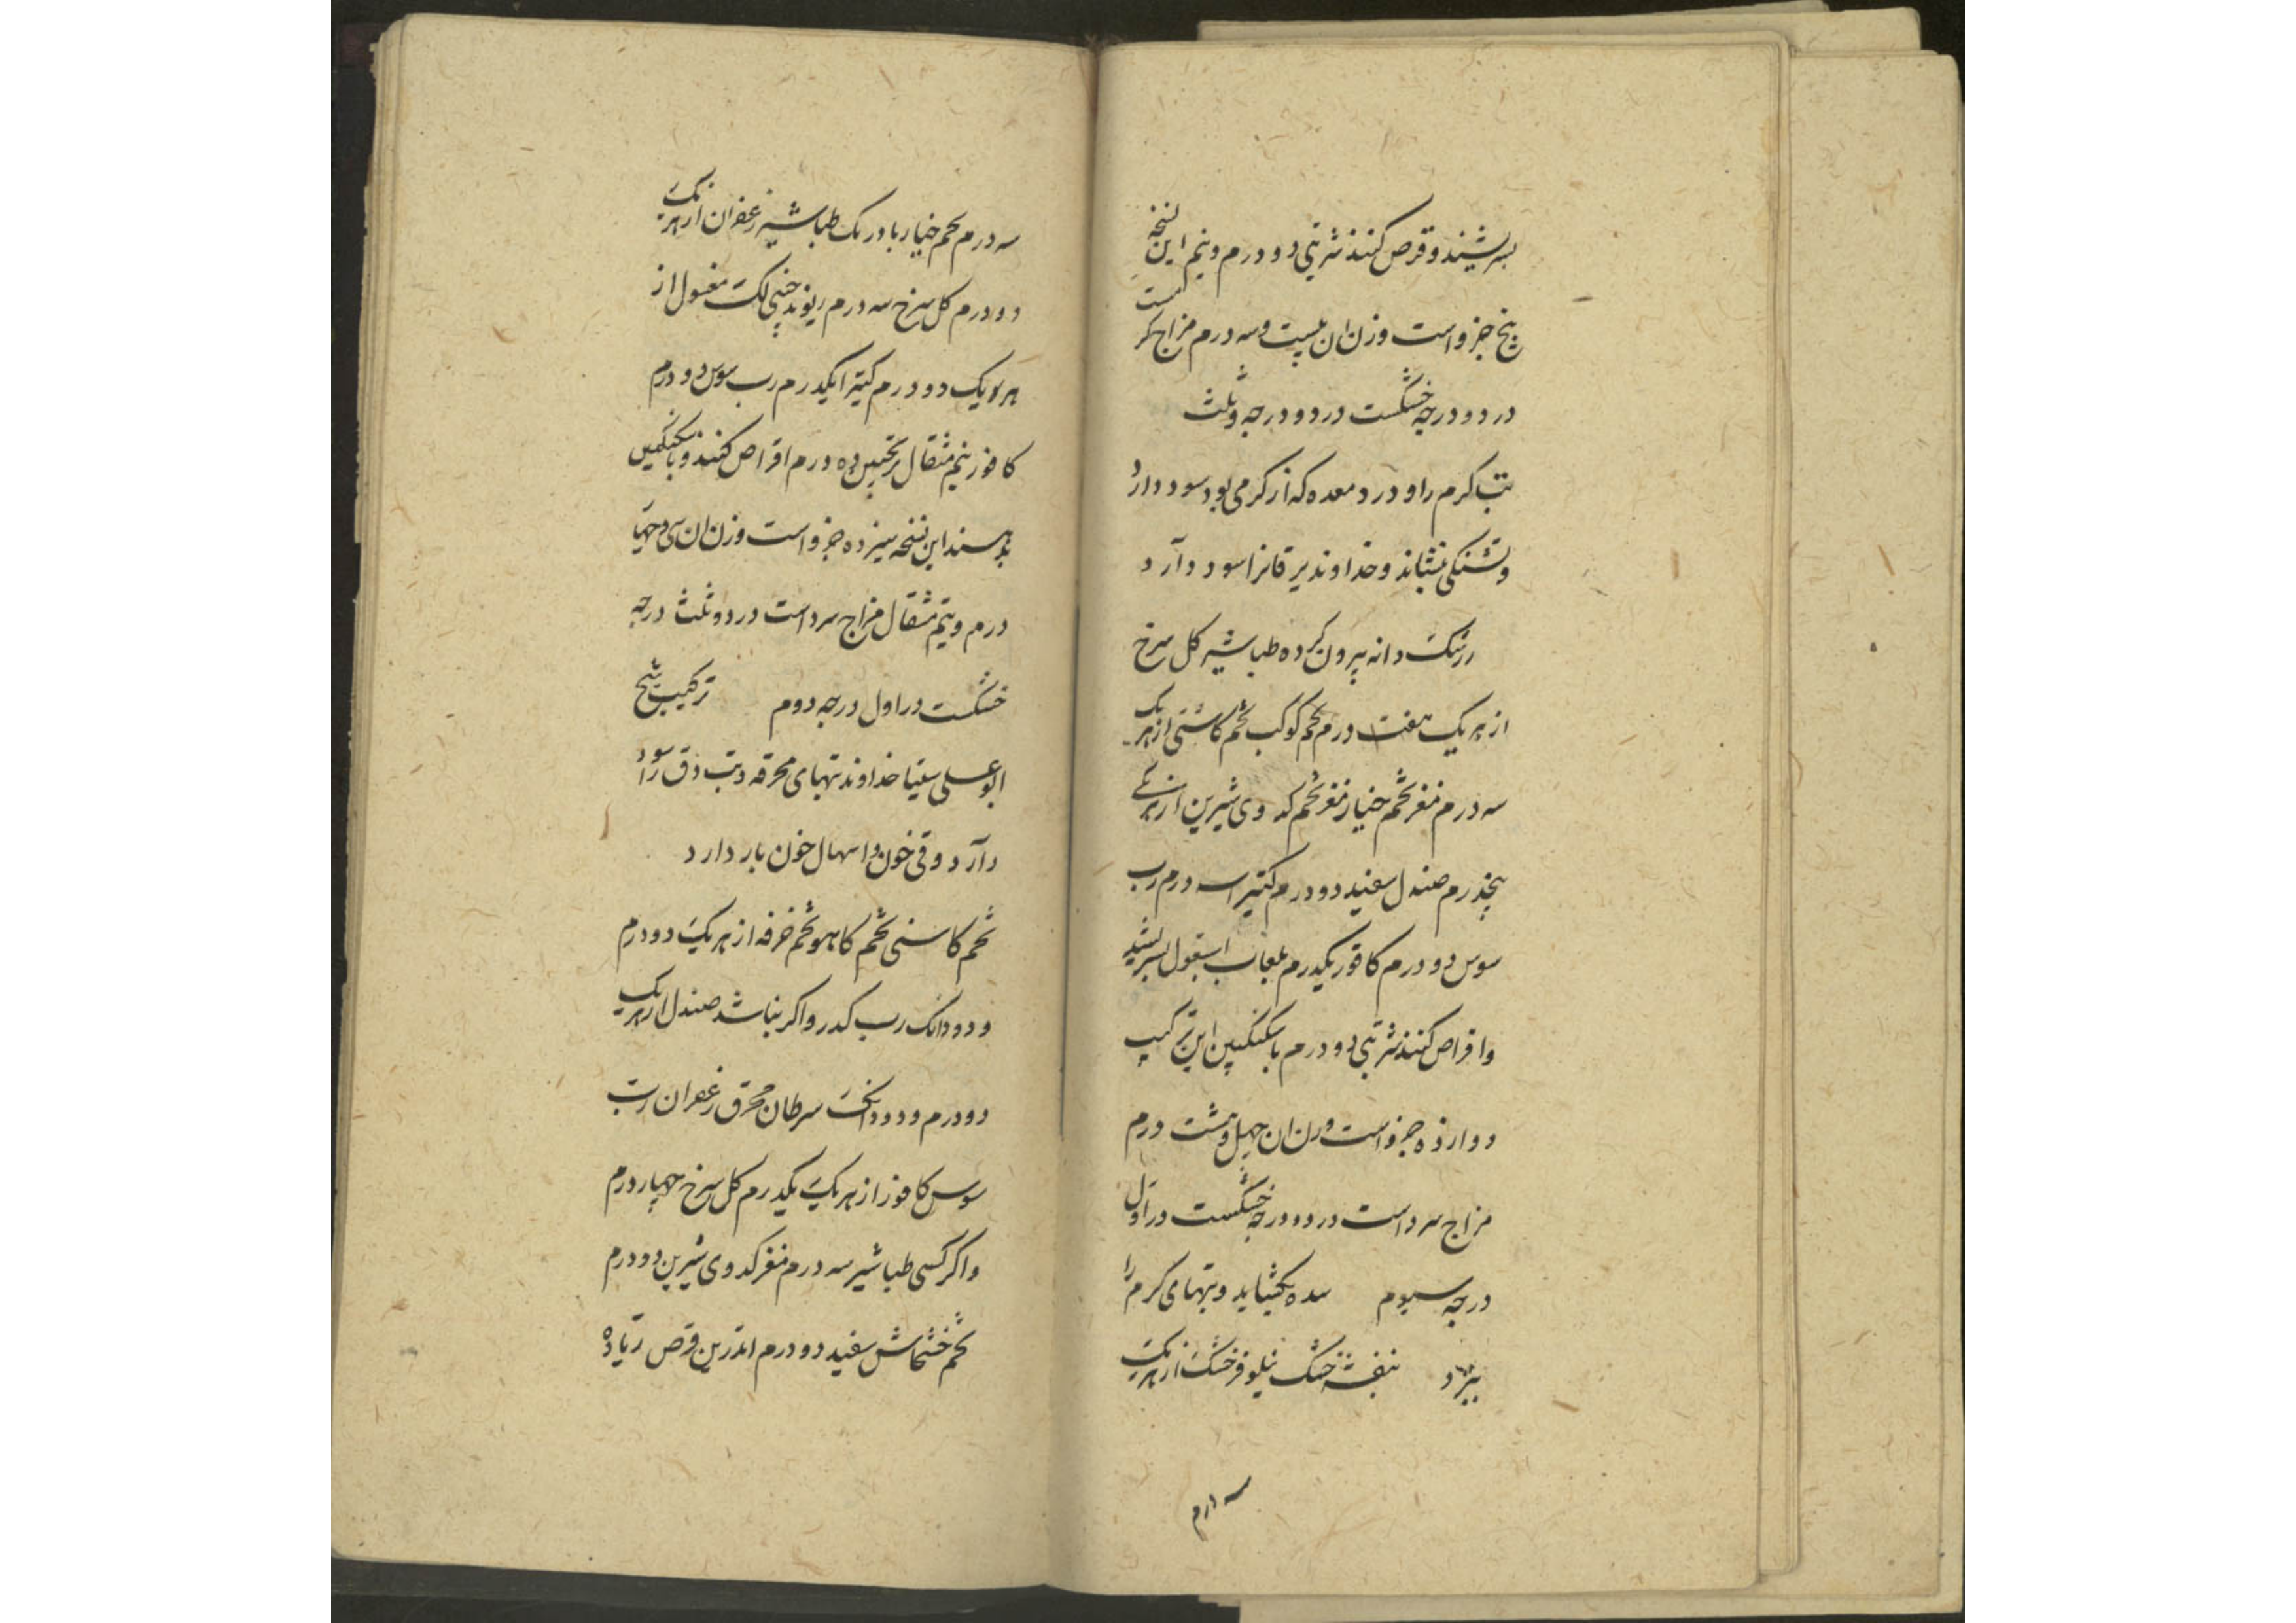 بسرشند و قرص کنند شربتی دو درم و نیم این نسخه
پنج جزو است وزن ان بیست و سه درم مزاج کرمست
در دو درجه خشکست در دو درجه و ثلث
تب کرم را و درد معده که از کرمی بود سود دارد
و تشنکی بنشاند و خداوند یرقانرا سود دارد
زرشک دانه بیرون کرده طباشیر کل سرخ
از هر یک هفت درم تخم کوکب تخم کاسنی از هر یک
سه درم مغز تخم خیار مغز تخم کدوی شیرین از هر یکے
پنجدرم صندل سفید دو درم کتیرا سه درم رب
سوس دو درم کافور یکدرم بلعاب اسبغول بسریشند
واقراص کنند شربتی دو درم باسکنکبین این ترکیب
دوازده جزو است وزن ان چهل و هشت درم
مزاج سرد است در دو درجه خشکست در اول
درجه سیوم سده بکشاید و تبهای کرم را
ببرد بنفشه خشک نیلوفر خشک از هر یک
سه درم
سه درم تخم خیار بادرنک طباشیر زعفران از هر یک
دو درم کل سرخ سه درم ریوند چینی لک مغسول از
هر یک دو درم کتیرا یکدرم رب سوس دو درم
کافور نیم مثقال ترنجبین ده درم اقراص کنند و باسکنکبین
بدهند این نسخه سیزده جزو است وزن ان سی و چهار
درم و نیم مثقال مزاج سرد است در دو ثلث درجه
خشکست در اول درجه دوم ترکیب شیخ
ابوعلی سینا خداوند تبهای محرقه و تب دق را سود
دارد و قی خون و اسهال خون باز دارد
تخم کاسنی تخم کاهو تخم خرفه از هر یک دو درم
و دو دانک رب کدر و اکر نباشد صندل از هر یک
دو درم و دو دانک سرطان محرق زعفران رب
سوس کافور از هر یک یکدرم کل سرخ چهار درم
واکر کسی طباشیر سه درم مغز کدوی شیرین دو درم
تخم خشخاش سفید دو درم اندرین قرص زیاده